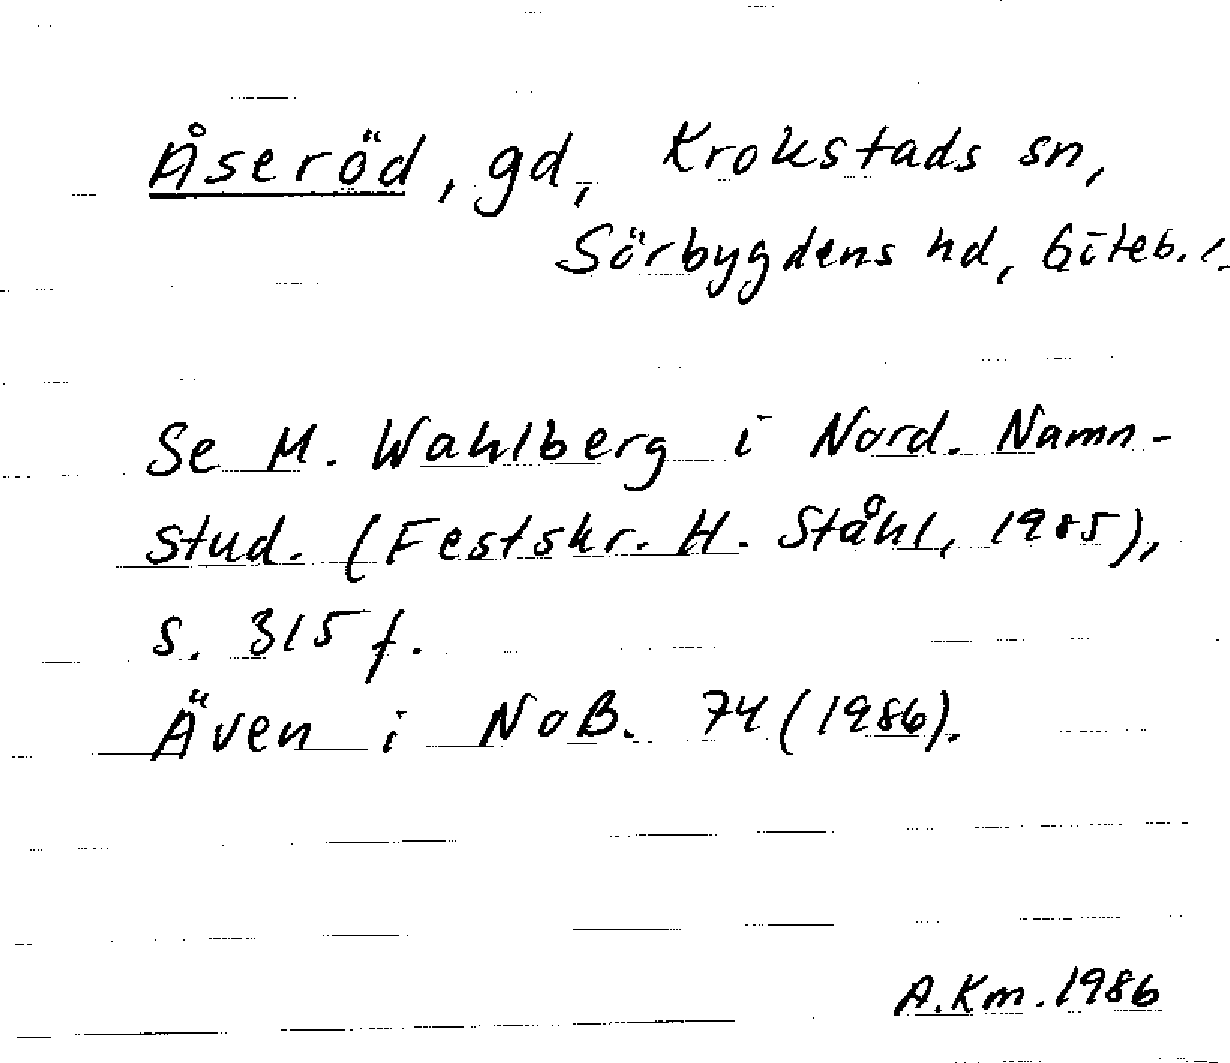 Åseröd, gd, Krokstads sn,
Sörbygdens hd, Göteb. l.
Se M. Wahlberg i Nord. Namn-
stud. (Festskr. H. Ståhl, 1985),
s. 315 f.
Även i NoB. 74 (1986).
A.Km. 1986